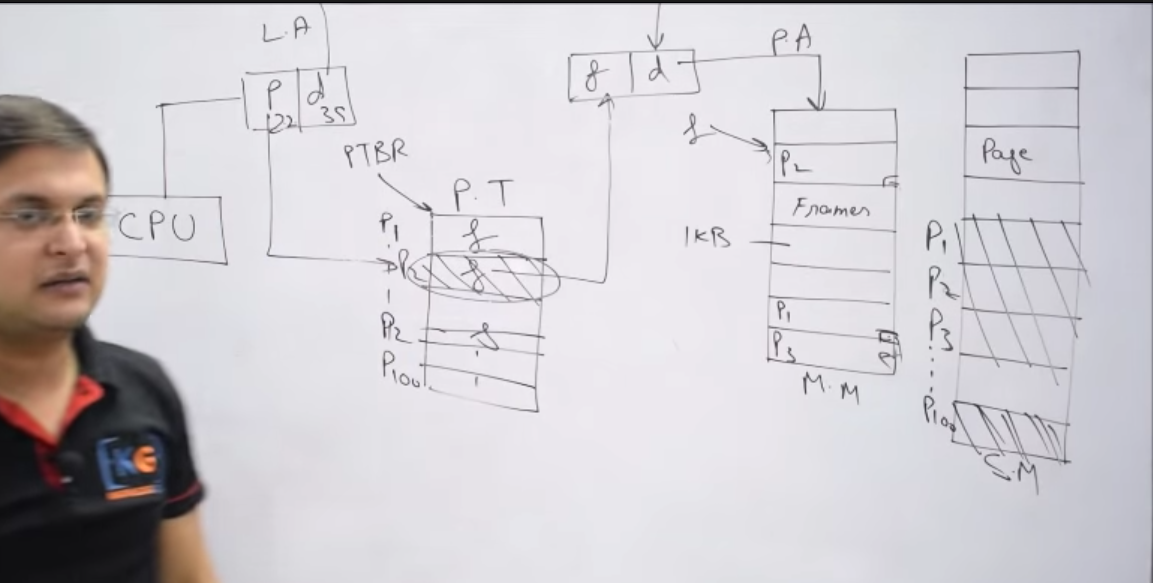 L.A
P d
22 35
CPU
PTBR
P.T
P1 f
P2 f
P2 f
P100
f d
P.A
f
P2
Frames
1KB
P1
P3
M.M
Page
P1
P2
P3
P100
S.M
KG